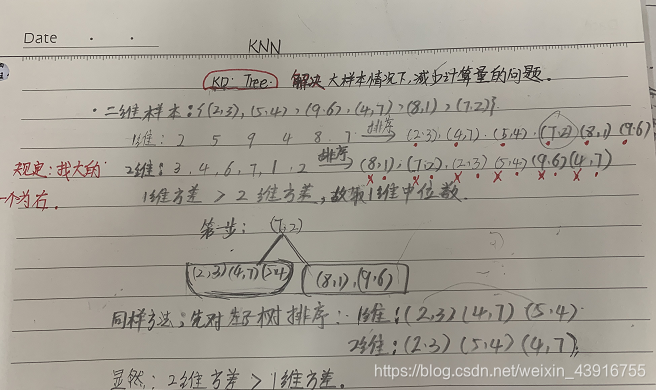 Date
KNN
KD: Tree. 解决大样本情况下,减少计算量的问题。
· 二维样本:{(2,3),(5,4),(9,6),(4,7),(8,1),(7,2)}
1维: 2 5 9 4 8 7 排序→ (2,3)(4,7)(5,4)(7,2)(8,1)(9,6)
规定:找大的 2维: 3, 4, 6, 7, 1, 2 排序→ (8,1),(7,2),(2,3)(5,4)(9,6)(4,7)
一个为右. 1维方差 > 2维方差,故取1维中位数.
第一步: (7,2)
(2,3)(4,7)(5,4) (8,1),(9,6)
同样方法;先对左子树排序: 1维:(2,3)(4,7)(5,4)
2维:(2,3)(5,4)(4,7)
显然: 2维方差 > 1维方差.
https://blog.csdn.net/weixin_43916755